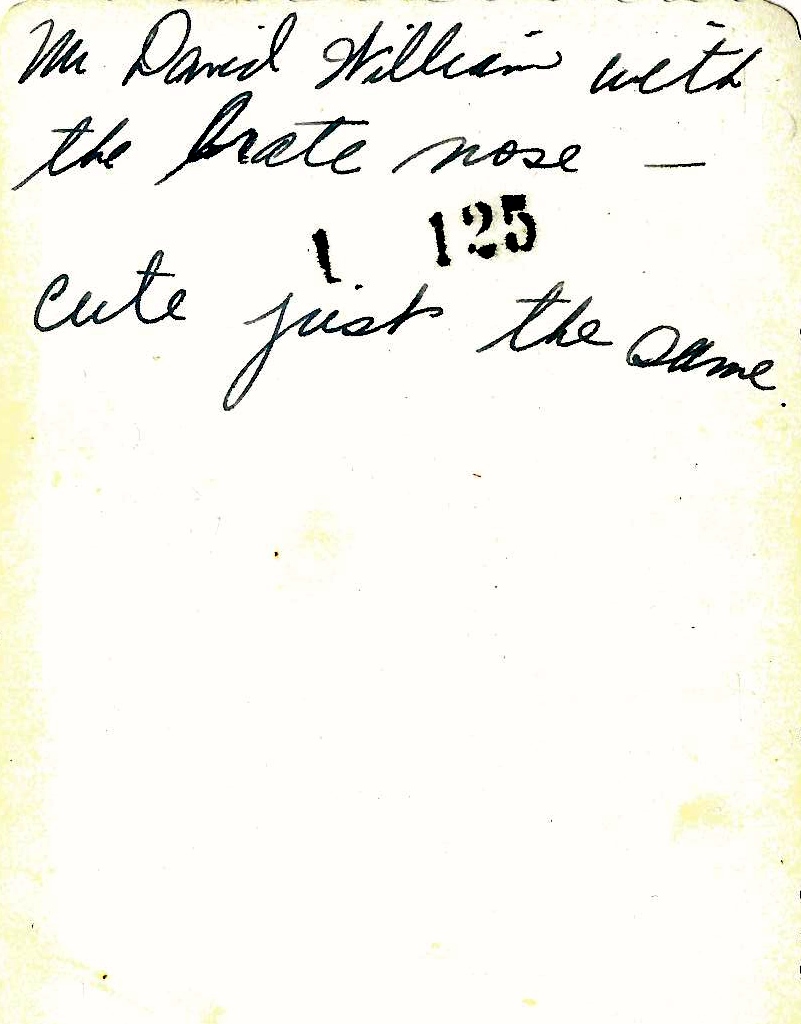 Mr David William with
the brate nose —
1 125
cute just the same.